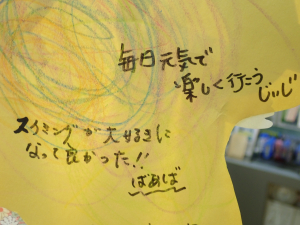 毎日元気で
楽しく行こう
じいじ
スイミングが大好きに
なって良かった!!
ばあば